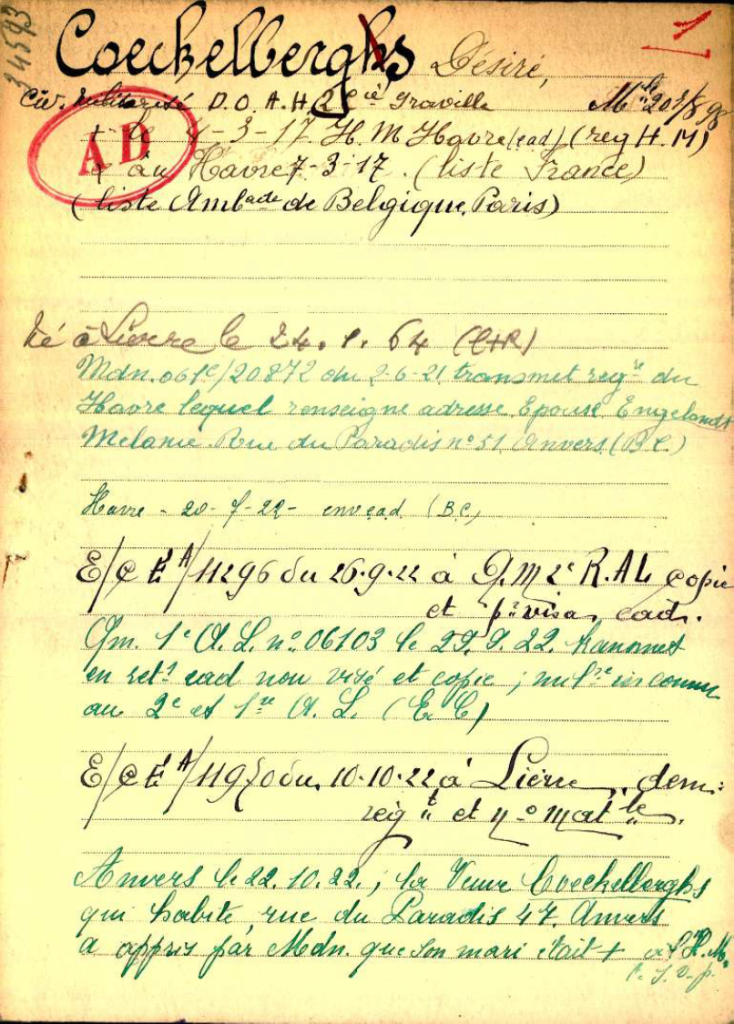 34593
Coeckelberghs Désiré,
1
Civ. militarisé D.O.A.H. 2 Cie Graville Mle 201/8/98
AD
+ le 4-3-17 H.M Havre (cad) (reg H.M)
+ au Havre 7-3-17. (liste France)
(liste Ambade de Belgique, Paris)
Né à Lierre le 24. 1. 64 (EHR)
Mdn. 061c/20872 du 2-6-21 transmet regre du
Havre lequel renseigne adresse Epouse Engelandt
Melanie Rue du Paradis n° 51 Anvers (B.C.)
Havre - 20-7-22- env cad (B.C)
E/C E A/11296 du 26-9-22 à Q.M 2e R.AL copie
et pr visa cad.
Qm. 1e A.L. n° 06103 le 29.9.22 transmet
en ret cad non visé et copie; milre inconnu
au 2e et 1re A.L. (E.C)
E/C E A/11970 du 10-10-22 à Lierre dem:
regt et no matle.
Anvers le 22.10.22; la Veuve Coeckelberghs
qui habite rue du Paradis 47 Anvers
a appris par Mdn. que son mari était + à l'H.M.